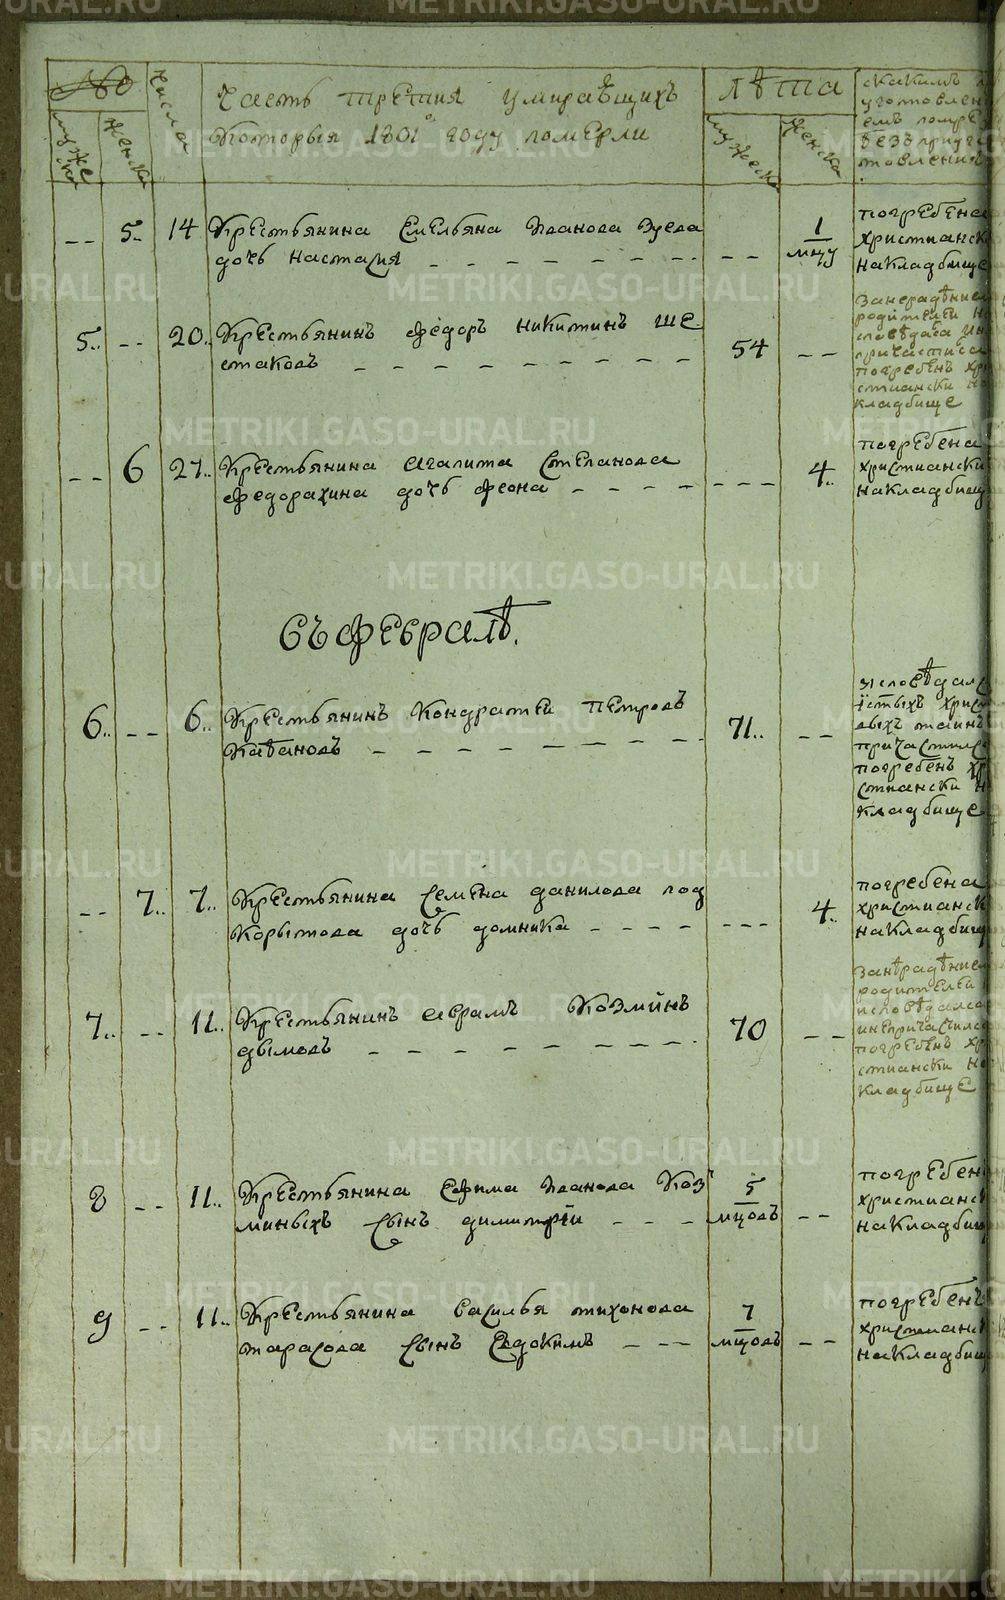 №
мужеска
женска
числа
Часть третия умираѣщихъ
которыя 1801го году померли
лѣта
мужеска
женска
скакимъ
уготовлен
емъ
безъ приуго
товления
-- 5. 14 Крестьянина Емельяна Иванова Зуева
дочь Насталия
1
мцу
погребена
христианск
на кладбище
5.. -- 20. Крестьянинъ Федоръ Никитинъ Ше
стаковъ
54 --
занерадѣнием
родителей
погребенъ хри
стиански на
кладбище
-- 6 27.. Крестьянина Агапита Степанова
Федорахина дочь Феона
--- 4..
погребена
христиански
на кладбищ
Въ Февралѣ.
6.. -- 6.. Крестьянинъ Кондратей Петровъ
Кабановъ
71.. --
исповѣдалс
истыхъ христ
выхъ таинъ
причастилс
погребенъ хр
стиански н
кладбище
-- 7.. 7.. Крестьянина Семена Данилова под
корытова дочь Домника
--- 4.
погребена
христианск
на кладбищ
7.. -- 11.. Крестьянинъ Аврамъ Козминъ
Дымовъ
70 --
занѣрадѣнием
родителей
исповѣдалса
инепричастилс
погребенъ хр
стиански на
кладбище
8 -- 11.. Крестьянина Ефима Иванова Коз
миныхъ сынъ Димитрии
5
мцовъ --
погребен
христианс
на кладбищ
9 -- 11.. Крестьянина Василья Тихонова
Тарасова сынъ Евдокимъ
7
мцовъ --
погребенъ
христианск
на кладбищ
METRIKI.GASO-URAL.RU